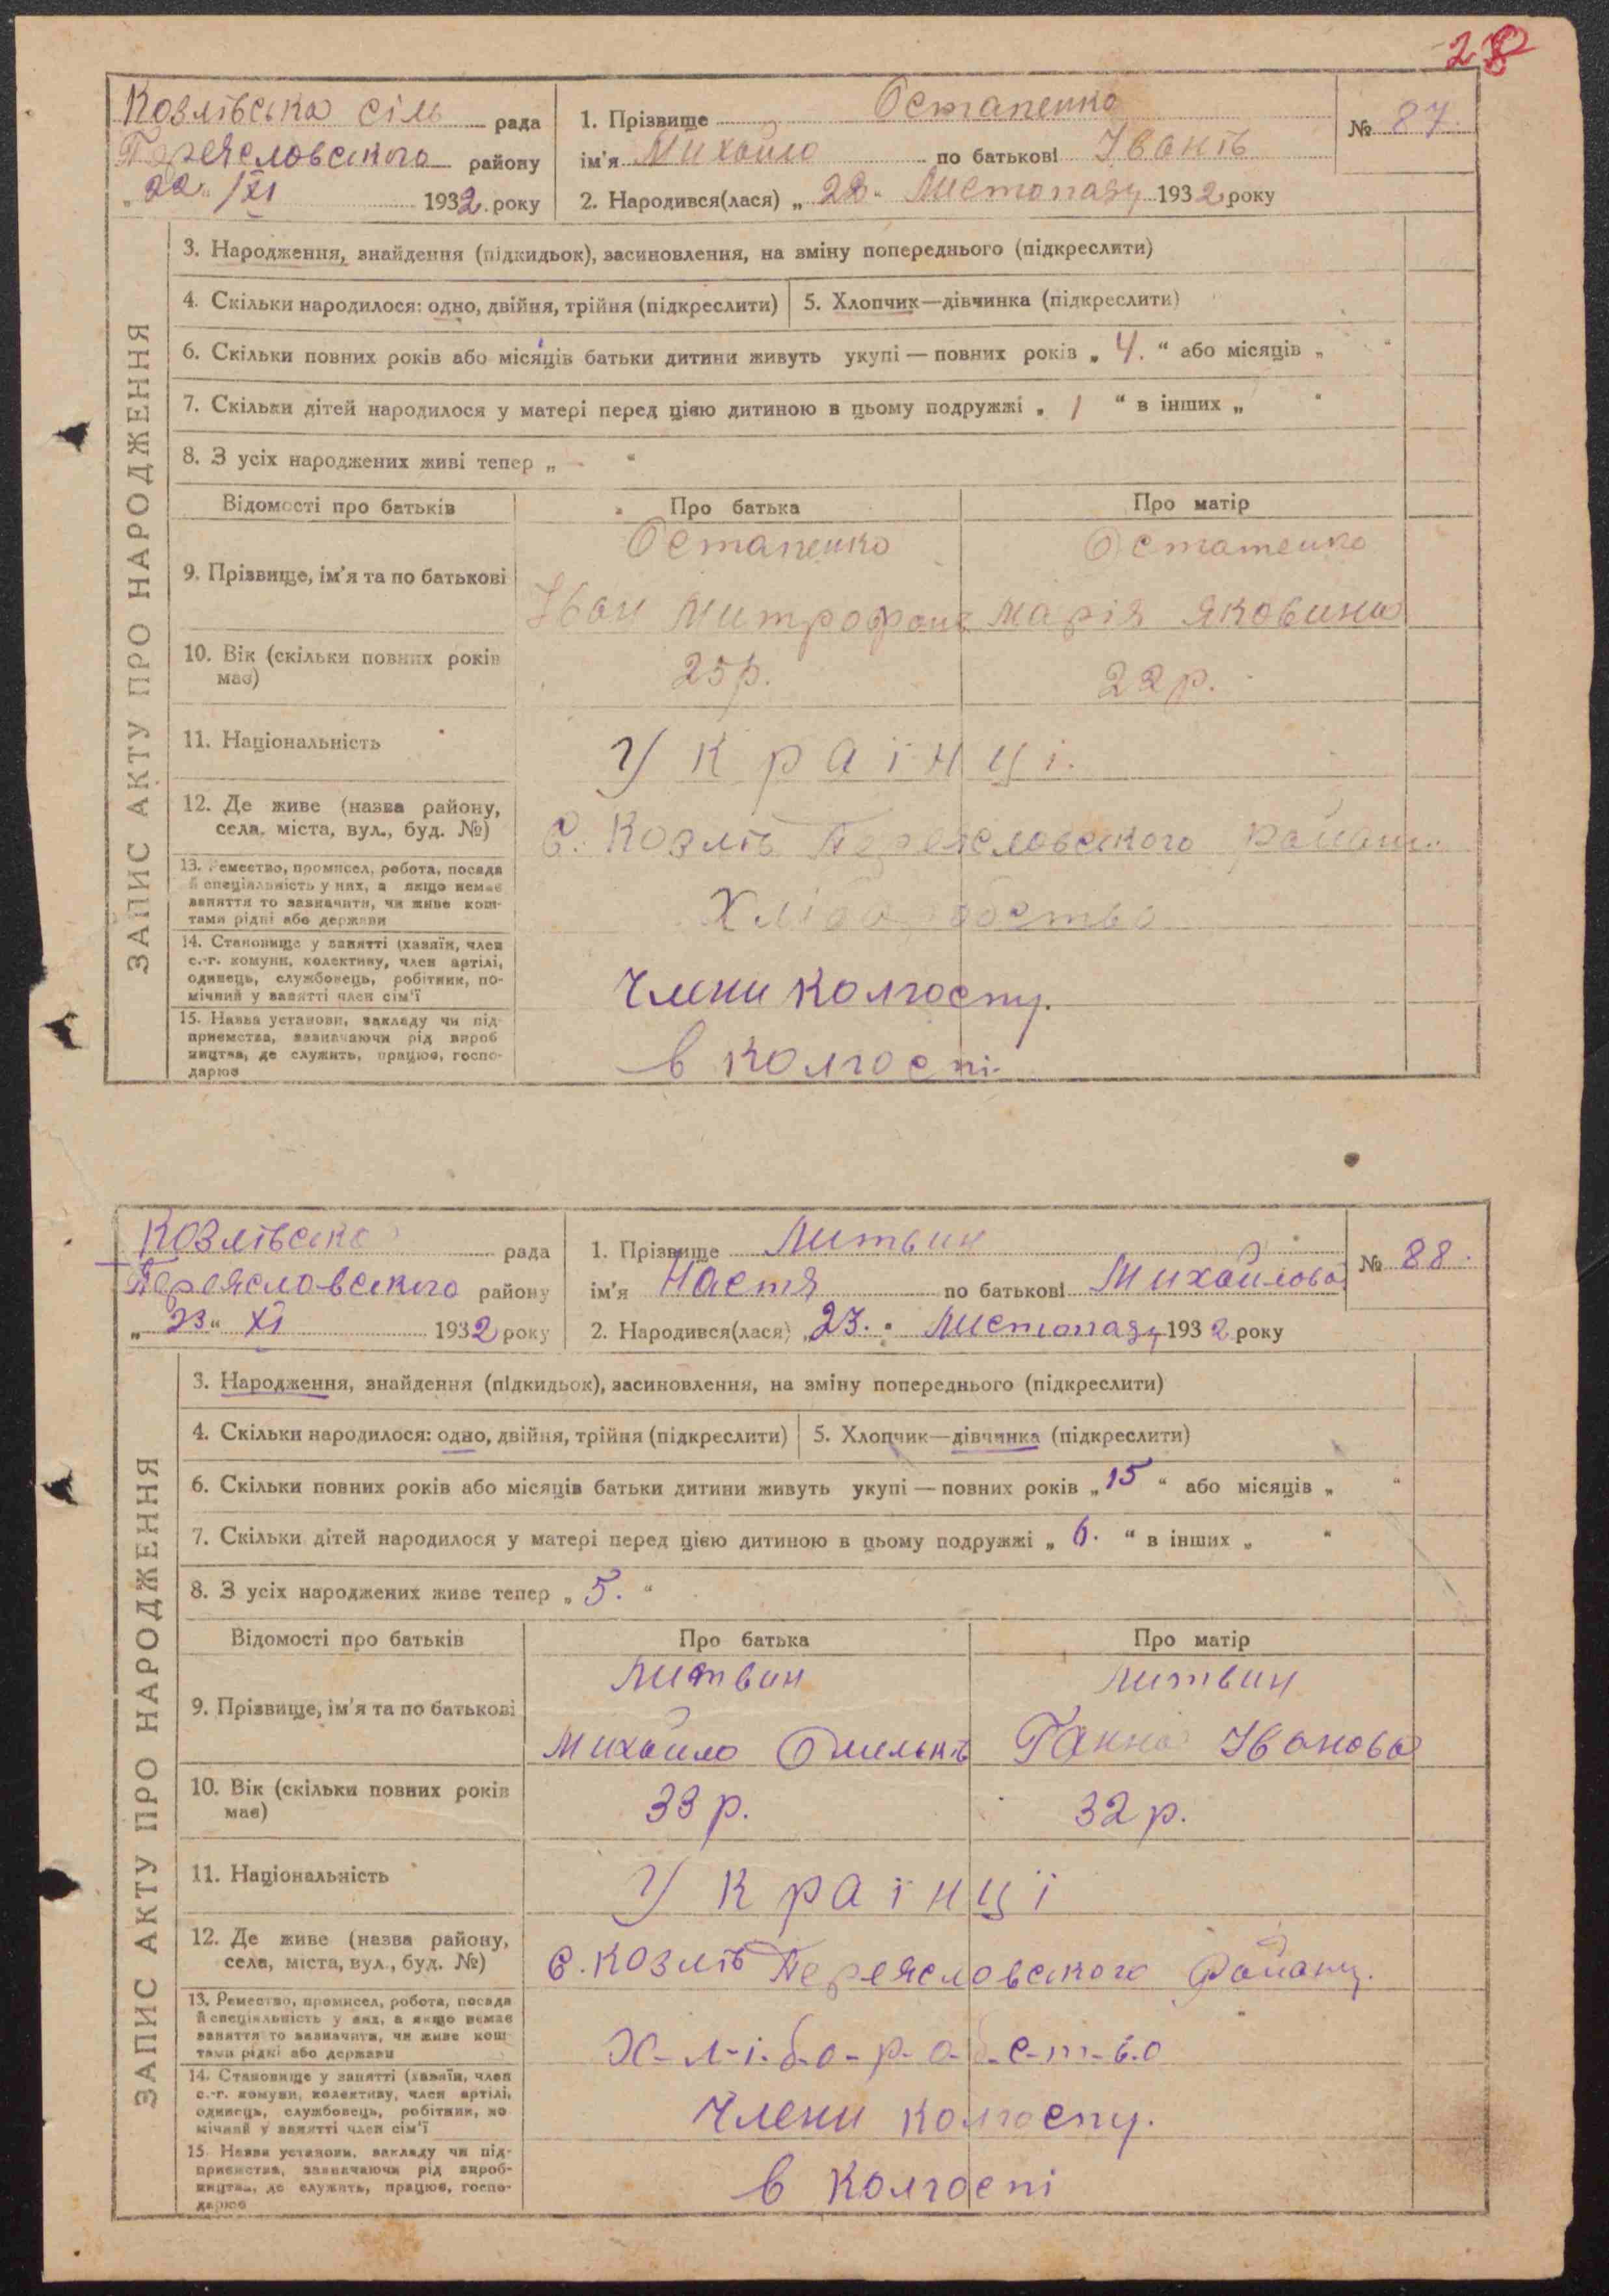 28
Козлівська сіль рада
Переяславського району
„22“ /XI 1932 року
1. Прізвище Остапенко
ім'я Михайло по батькові Іванів
2. Народився(лася) „22“ Листопаду 1932 року
№ 87.
ЗАПИС АКТУ ПРО НАРОДЖЕННЯ
3. Народження, знайдення (підкидьок), засиновлення, на зміну попереднього (підкреслити)
4. Скільки народилося: одно, двійня, трійня (підкреслити) 5. Хлопчик—дівчинка (підкреслити)
6. Скільки повних років або місяців батьки дитини живуть укупі — повних років „4.“ або місяців „ “
7. Скільки дітей народилося у матері перед цією дитиною в цьому подружжі „1“ в інших „ “
8. З усіх народжених живі тепер „ “
Відомості про батьків Про батька Про матір
9. Прізвище, ім'я та по батькові
Остапенко Остапенко
Іван Митрофанів Марія Яковина
10. Вік (скільки повних років
має)
25р. 22р.
11. Національність Українці.
12. Де живе (назва району,
села, міста, вул., буд. №)
с. Козлів Переясловського району.
13. Ремество, промисел, робота, посада
й спеціяльність у них, а якщо немає
заняття то зазначити, чи живе кош-
тами рідні або держави
Хліборобство
14. Становище у занятті (хазяїн, член
с.-г. комуни, колективу, член артілі,
одинець, службовець, робітник, по-
мічний у занятті член сім'ї
Члени колгоспу.
15. Назва установи, закладу чи під-
приємства, зазначаючи рід вироб
ництва, де служить, працює, госпо-
дарює
в колгоспі.
Козлівська рада
Переясловського району
„23“ XI 1932 року
1. Прізвище Литвин
ім'я Настя по батькові Михайлова
2. Народився(лася) „23. “ Листопаду 1932 року
№ 88.
ЗАПИС АКТУ ПРО НАРОДЖЕННЯ
3. Народження, знайдення (підкидьок), засиновлення, на зміну попереднього (підкреслити)
4. Скільки народилося: одно, двійня, трійня (підкреслити) 5. Хлопчик—дівчинка (підкреслити)
6. Скільки повних років або місяців батьки дитини живуть укупі — повних років „15“ або місяців „ “
7. Скільки дітей народилося у матері перед цією дитиною в цьому подружжі „6.“ в інших „ “
8. З усіх народжених живе тепер „5.“
Відомості про батьків Про батька Про матір
9. Прізвище, ім'я та по батькові
Литвин Литвин
Михайло Омельків Ганна Іванова
10. Вік (скільки повних років
має)
33р. 32р.
11. Національність Українці
12. Де живе (назва району,
села, міста, вул., буд. №)
с. Козлів Переясловського району.
13. Ремество, промисел, робота, посада
й спеціяльність у них, а якщо немає
заняття то зазначити, чи живе кош
тами рідні або держави
Х-л-і-б-о-р-о-б-с-т-в-о
14. Становище у занятті (хазяїн, член
с.-г. комуни, колективу, член артілі,
одинець, службовець, робітник, по
мічний у занятті член сім'ї
Члени колгоспу.
15. Назва установи, закладу чи під-
приємства, зазначаючи рід вироб-
ництва, де служить, працює, госпо-
дарює
в колгоспі